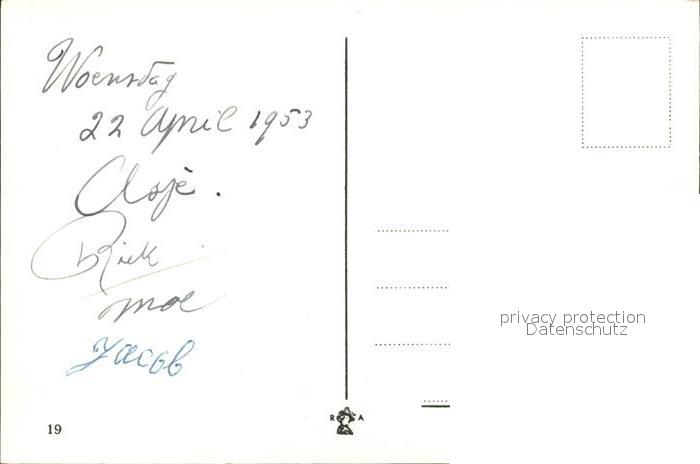 Woensdag
22 April 1953
Riek
moe
Jacob
19
R A
privacy protection
Datenschutz